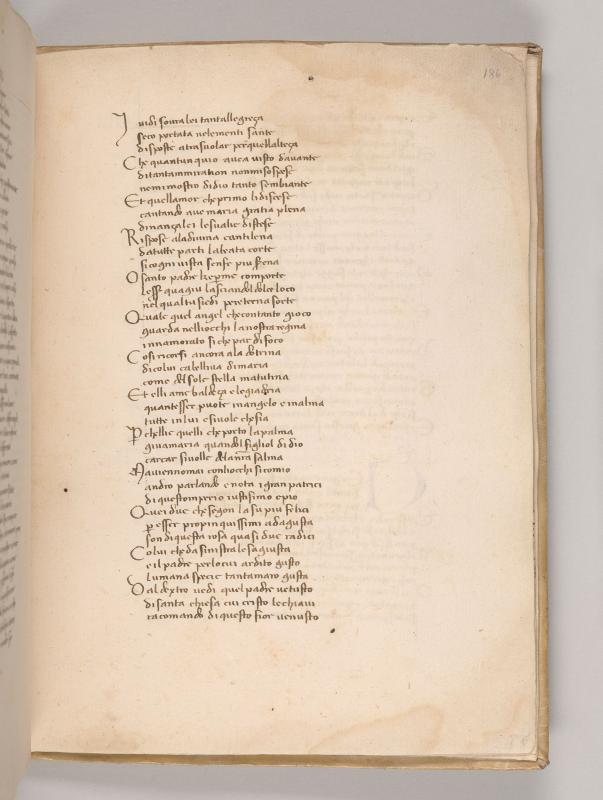 186
I vidi sovra lei tantallegreça
seco portata nelementi sante
disposte atrasuolar perquellalteça
Che quantunquio avea visto davante
ditantammiration nonmisospese
nemimostro didio tanto sembiante
Et quellamor cheprimo lidiscese
cantando ave maria gratia plena
dinançalei lesualie distese
Rispose aladiuina cantilena
datutte parti labeata corte
sicogni uista senfe piu serena
O santo padre kepme comporte
lesser quagiu lasciandol dolce loco
nel qual tu siedi pereterna sorte
Quale quel angel checontanto gioco
guarda nelliocchi lanostra regina
innamorato si che par di foco
Cosi ricorsi ancora ala dotrina
dicolui cabelliua dimaria
come del sole stella matutina
Et elli ame baldeça elegiadria
quantesser puote inangelo e inalma
tutte in lui esiuole chesia
Pchellie quelli che porto lapalma
giuamaria quandol figliol di dio
carcar siuolle dela nra salma
Mauiennomai congliocchi sicomio
andro parlando e nota i gran patrici
di questomperio iustisimo epio
Quei due che segon la su piu felici
p esser propinquissimi adagusta
son di questa rosa quasi due radici
Colui cheda sinistra lesagiusta
e il padre perlocui ardito gusto
lumana specie tantamaro gusta
Dal dextro uedi quel padre uetusto
di santa chiesa cui cristo lechiaui
racomando di questo fior uenusto